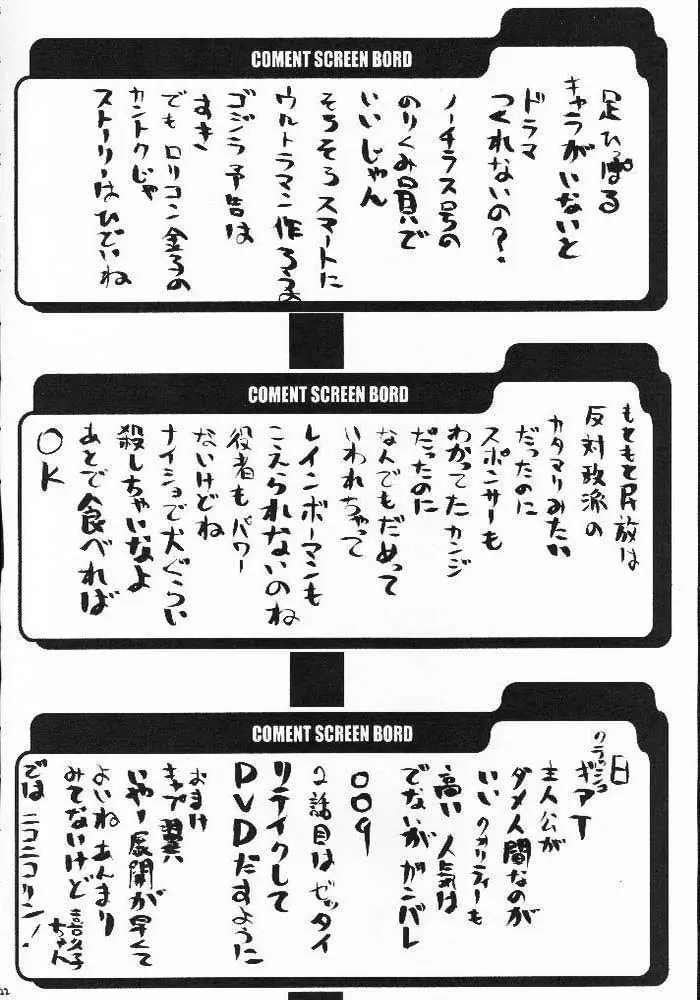 COMENT SCREEN BORD
足ひっぱる
キャラがいないと
ドラマ
つくれないの?
ノーチラス号の
のりくみ員で
いいじゃん
そろそろスマートに
ウルトラマン作ろうよ
ゴジラ予告は
すき、
でもロリコン金子の
カントクじゃ
ストーリーはひどいね
COMENT SCREEN BORD
もともと民放は
反対政派の
カタマリみたい
だったのに
スポンサーも
わかってたカンジ
だったのに
なんでもだめって
いわれちゃって
レインボーマンも
こえられないのね
役者もパワー
ないけどね
ナイショで犬ぐらい
殺しちゃいなよ
あとで食べれば
OK
COMENT SCREEN BORD
日
クラッシュ
ギアT
主人公が
ダメ人間なのが
いい クオリティーも
高い 人気は
でないが ガンバレ
009
2話目はゼッタイ
リテイクして
DVDだすように
おまけ
キャプ翼
いやー展開が早くて
よいね あんまり
みてないけど
喜久子ちゃん
では ニコニコリン!
22